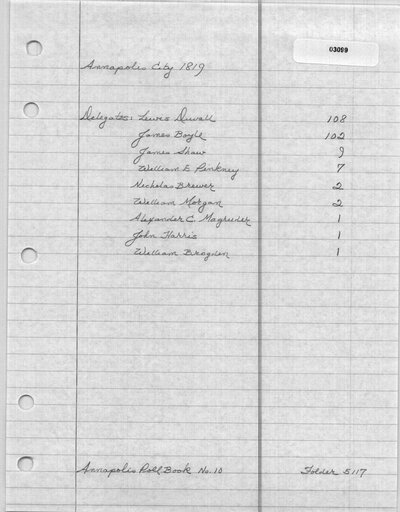 03099
Annapolis City 1819
Delegates: Lewis Duvall 108
James Boyle 102
James Shaw 9
William E Pinkney 7
Nicholas Brewer 2
William Morgan 2
Alexander C. Magruder 1
John Harris 1
William Brogden 1
Annapolis Poll Book No. 10 Folder 5117